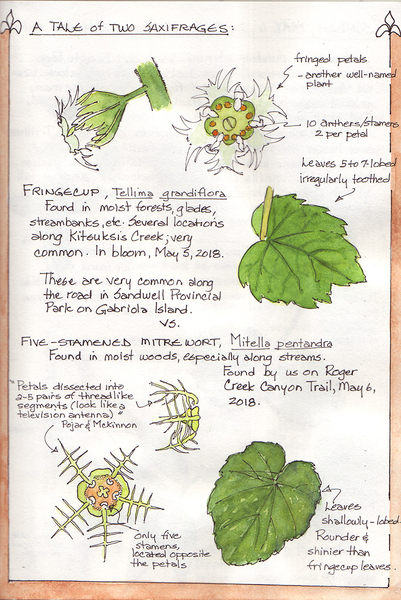 A TALE of TWO SAXIFRAGES:
fringed petals
- another well-named
plant
10 anthers/stamens
2 per petal
Leaves 5 to 7-lobed
irregularly toothed
FRINGECUP, Tellima grandiflora
Found in moist forests, glades,
streambanks, etc. Several locations
along Kitsuksis Creek; very
common. In bloom, May 5, 2018.
These are very common along
the road in Sandwell Provincial
Park on Gabriola Island.
VS.
FIVE-STAMENED MITREWORT, Mitella pentandra
Found in moist woods, especially along streams.
Found by us on Roger
Creek Canyon Trail, May 6,
2018.
"Petals dissected into
2-5 pairs of threadlike
segments (look like a
television antenna)"
Pojar & McKinnon
only five
stamens,
located opposite
the petals
Leaves
shallowly-lobed.
Rounder &
shinier than
fringecup leaves.